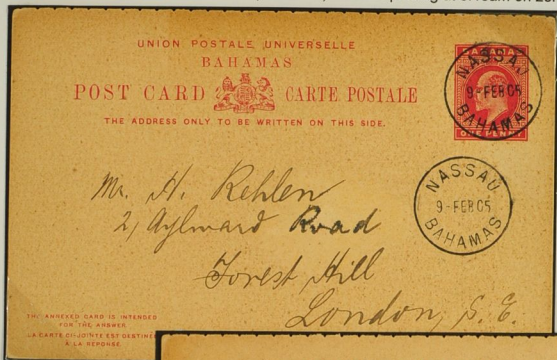 UNION POSTALE UNIVERSELLE
BAHAMAS
POST CARD CARTE POSTALE
THE ADDRESS ONLY TO BE WRITTEN ON THIS SIDE.
BAHAMAS
ONE PENNY
NASSAU
9-FEB 05
BAHAMAS
NASSAU
9-FEB 05
BAHAMAS
Mr. H. Rehlen
2, Aylward Road
Forest Hill
London, S. E.
THE ANNEXED CARD IS INTENDED
FOR THE ANSWER
LA CARTE CI-JOINTE EST DESTINÉE
À LA RÉPONSE